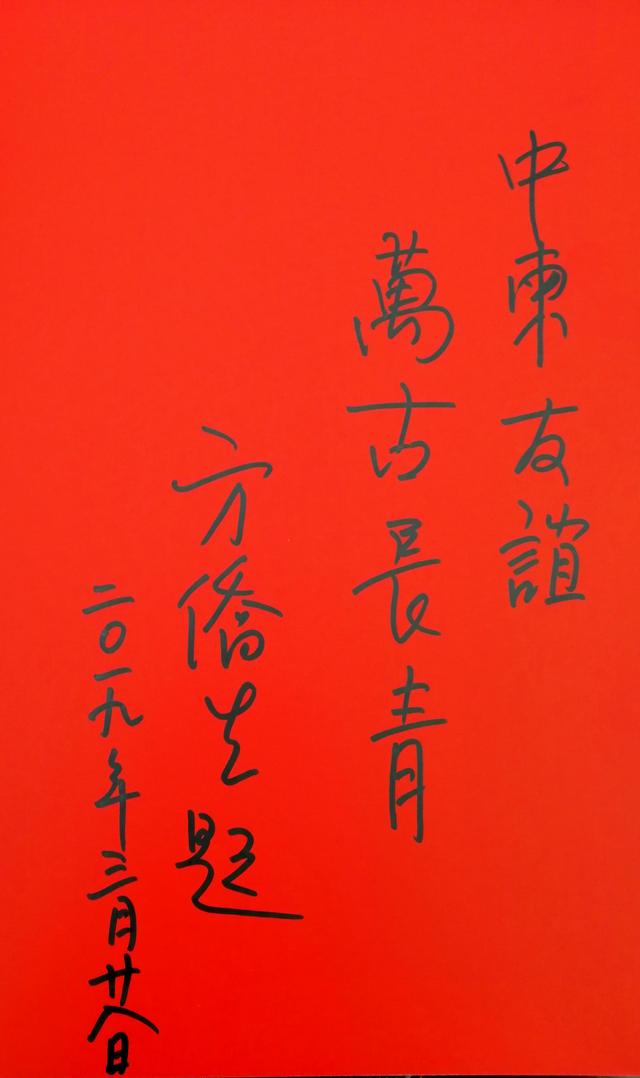 中柬友誼
萬古長青
方僑生題
二〇一九年三月廿八日